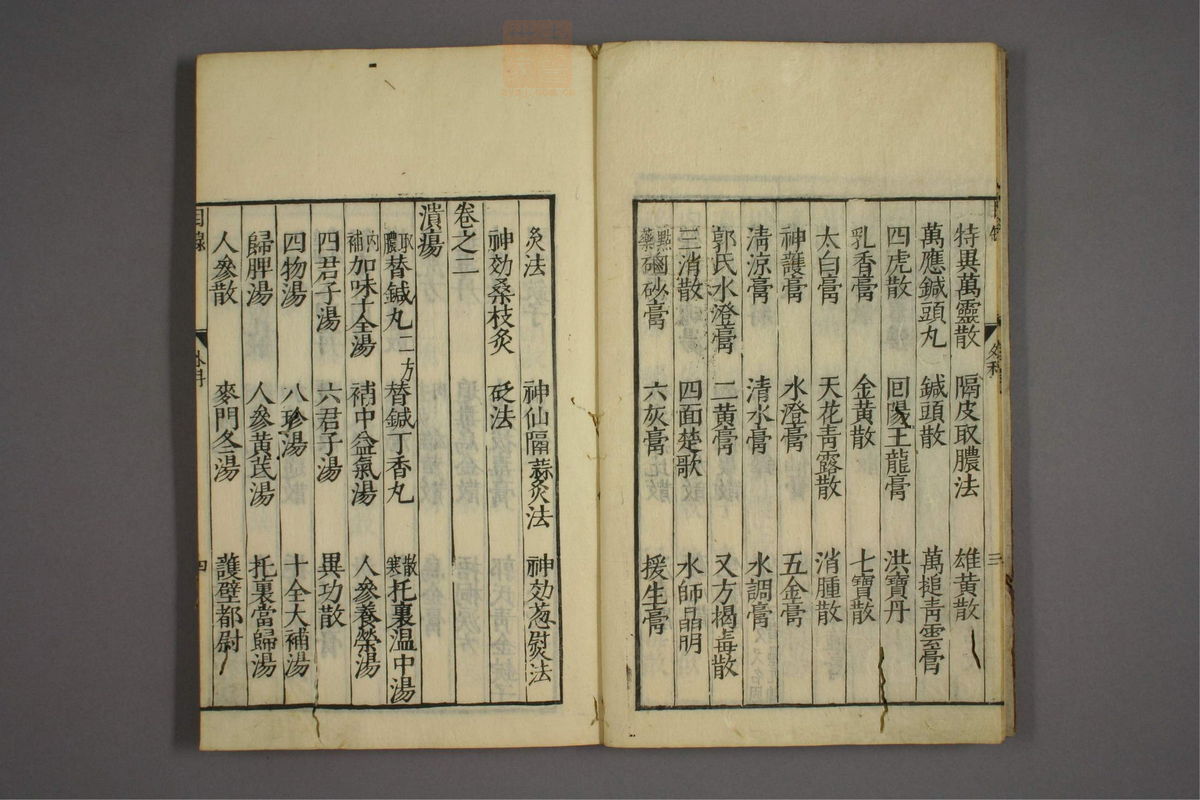 特異萬靈散 隔皮取膿法 雄黃散
萬應鍼頭丸 鍼頭散 萬搥青雲膏
四虎散 囘陽王龍膏 洪寶丹
乳香膏 金黃散 七寶散
太白膏 天花青露散 消腫散
神護膏 水澄膏 五金膏
清涼膏 清水膏 水調膏
郭氏水澄膏 二黃膏 又方揭毒散
三消散 四面楚歌 水師晶明
點藥𥐻砂膏 六灰膏 援生膏
三
外科
灸法 神仙隔蒜灸法 神効葱熨法
神効桑枝灸 砭法
卷之二
潰瘍
取膿替鍼丸二方 替鍼丁香丸 散寒托裏溫中湯
內補加味十全湯 補中益氣湯 人參養榮湯
四君子湯 六君子湯 異功散
四物湯 八珍湯 十全大補湯
歸脾湯 人參黃芪湯 托裏當歸湯
人參散 麥門冬湯 護壁都尉
目錄
外科
四